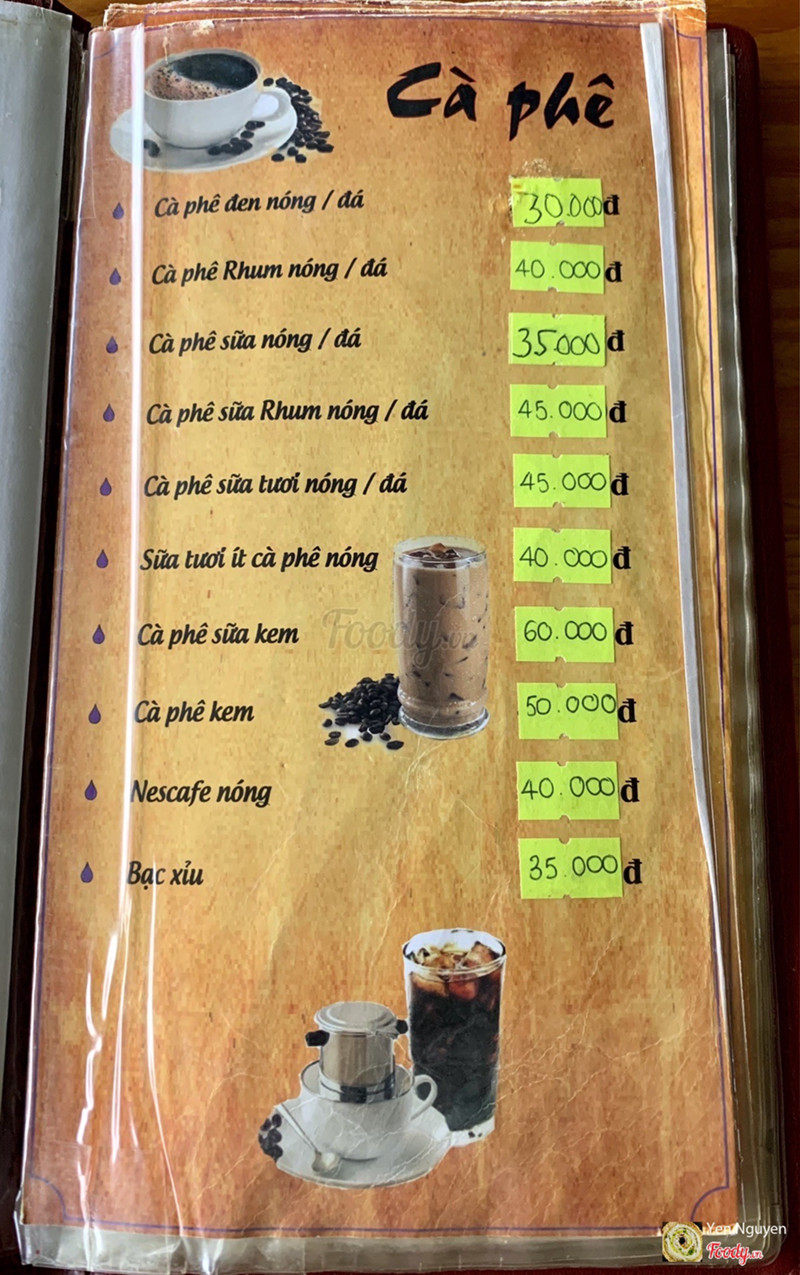 Cà phê
Cà phê đen nóng / đá 30.000đ
Cà phê Rhum nóng / đá 40.000đ
Cà phê sữa nóng / đá 35.000đ
Cà phê sữa Rhum nóng / đá 45.000đ
Cà phê sữa tươi nóng / đá 45.000đ
Sữa tươi ít cà phê nóng 40.000đ
Cà phê sữa kem 60.000đ
Cà phê kem 50.000đ
Nescafe nóng 40.000đ
Bạc xỉu 35.000đ
Foody.vn
Yen Nguyen
Foody.vn